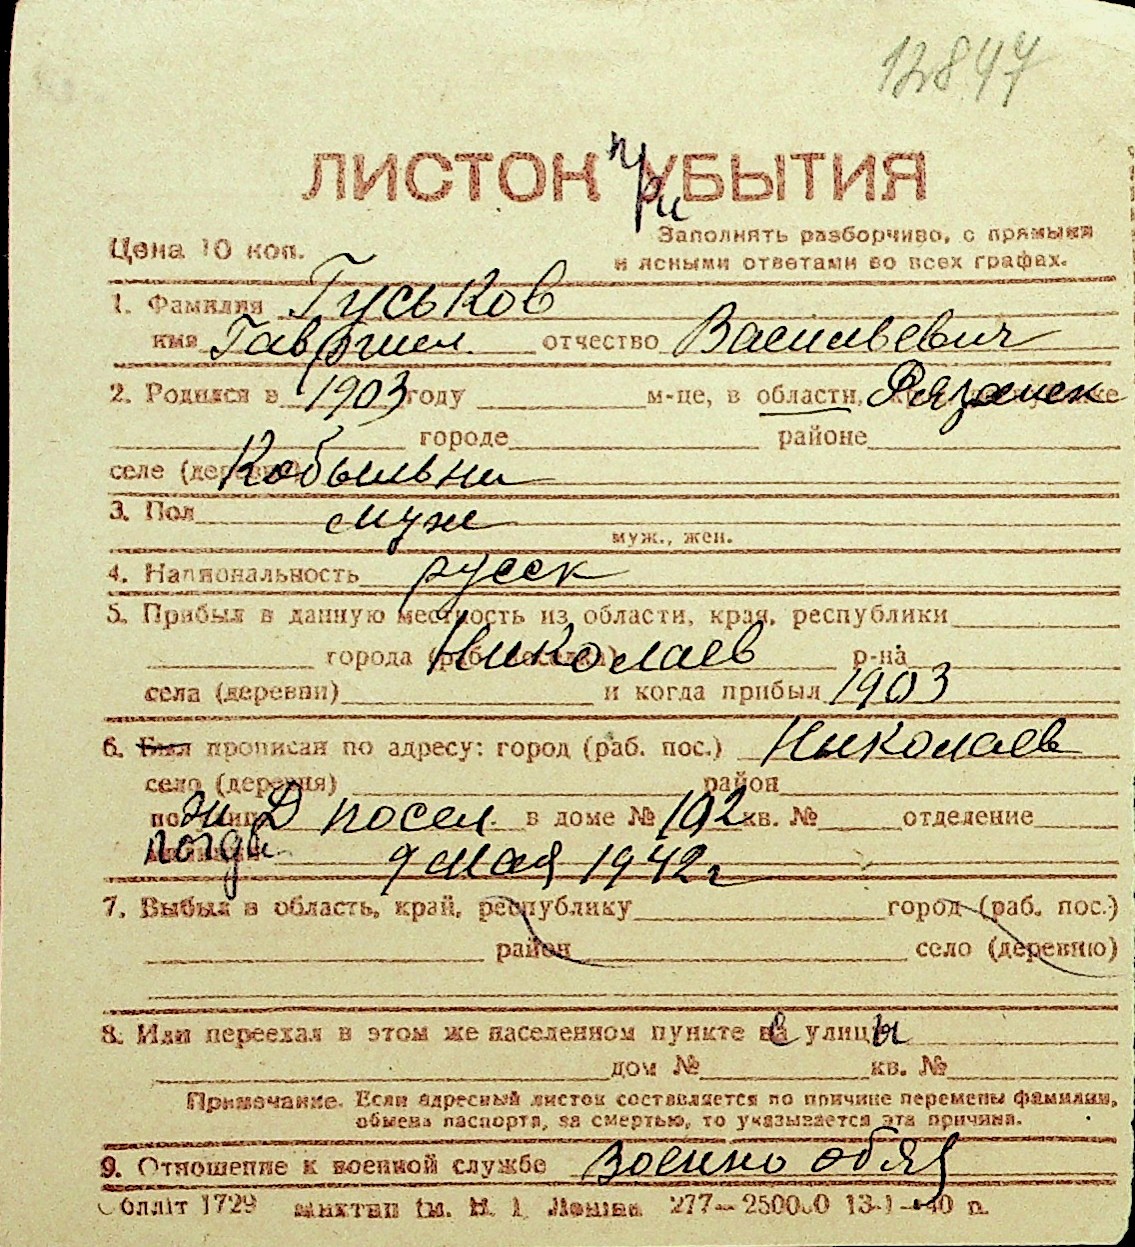 12847
ЛИСТОК при УБЫТИЯ
Цена 10 коп.
Заполнять разборчиво, с прямыми
и ясными ответами во всех графах.
1. Фамилия Гуськов
имя Гавриил отчество Васильевич
2. Родился в 1903 году м-це, в области, Рязанск
городе районе
селе (деревне) Кобыльни
3. Пол муж
муж., жен.
4. Национальность русск
5. Прибыл в данную местность из области, края, республики
города (раб. поселка) Николаев р-на
села (деревни) и когда прибыл 1903
6. Был прописан по адресу: город (раб. пос.) Николаев
село (деревня) район
по жи Д посел. в доме № 192 кв. № отделение
9 мая 1942 г
7. Выбыл в область, край, республику город (раб. пос.)
район село (деревню)
8. Или переехал в этом же населенном пункте в улицы
дом № кв. №
Примечание. Если адресный листок составляется по причине перемены фамилии,
обмена паспорта, за смертью, то указывается эта причина.
9. Отношение к военной службе военно обяз
Обллiт 1729 iм. 277— 25000 13-1—40 п.